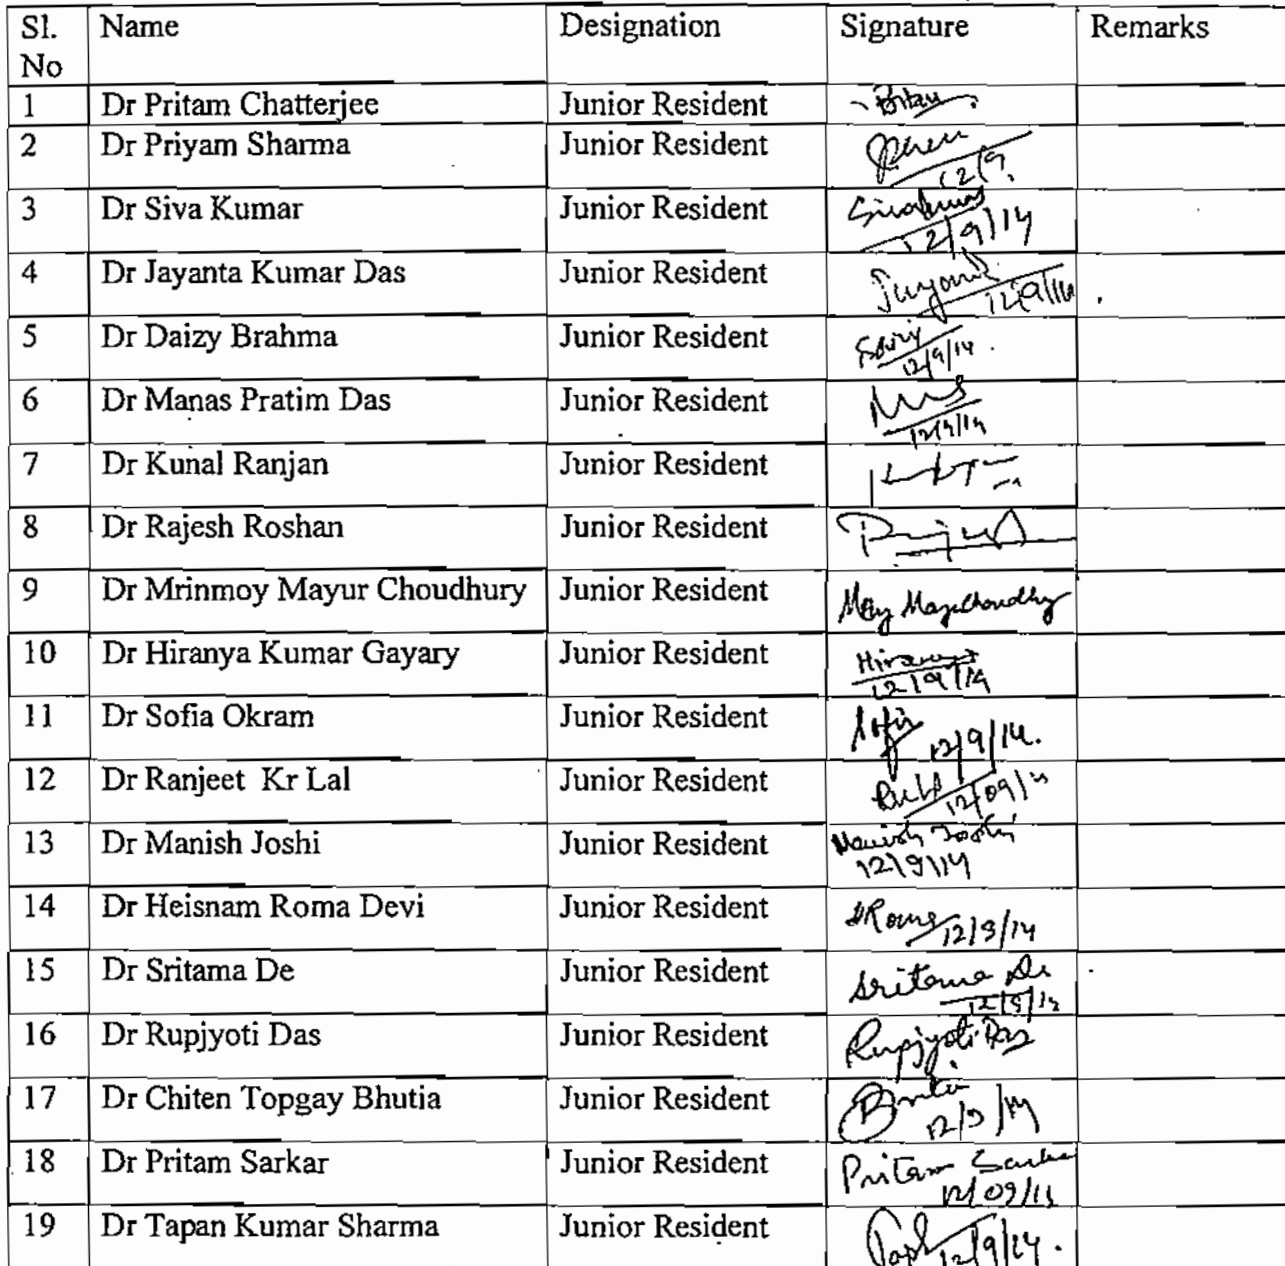 Sl. No Name Designation Signature Remarks
1 Dr Pritam Chatterjee Junior Resident
2 Dr Priyam Sharma Junior Resident 12/9
3 Dr Siva Kumar Junior Resident Sivakumar 12/9/14
4 Dr Jayanta Kumar Das Junior Resident Jayanta 12/9/14
5 Dr Daizy Brahma Junior Resident 12/9/14
6 Dr Manas Pratim Das Junior Resident 12/9/14
7 Dr Kunal Ranjan Junior Resident
8 Dr Rajesh Roshan Junior Resident
9 Dr Mrinmoy Mayur Choudhury Junior Resident
10 Dr Hiranya Kumar Gayary Junior Resident Hiranya 12/9/14
11 Dr Sofia Okram Junior Resident Sofia 12/9/14.
12 Dr Ranjeet Kr Lal Junior Resident 12/09/14
13 Dr Manish Joshi Junior Resident Manish Joshi 12/9/14
14 Dr Heisnam Roma Devi Junior Resident HRoma 12/9/14
15 Dr Sritama De Junior Resident Sritama De 12/9/14
16 Dr Rupjyoti Das Junior Resident Rupjyoti Das
17 Dr Chiten Topgay Bhutia Junior Resident 12/9/14
18 Dr Pritam Sarkar Junior Resident Pritam Sarkar 12/09/14
19 Dr Tapan Kumar Sharma Junior Resident 12/9/14.